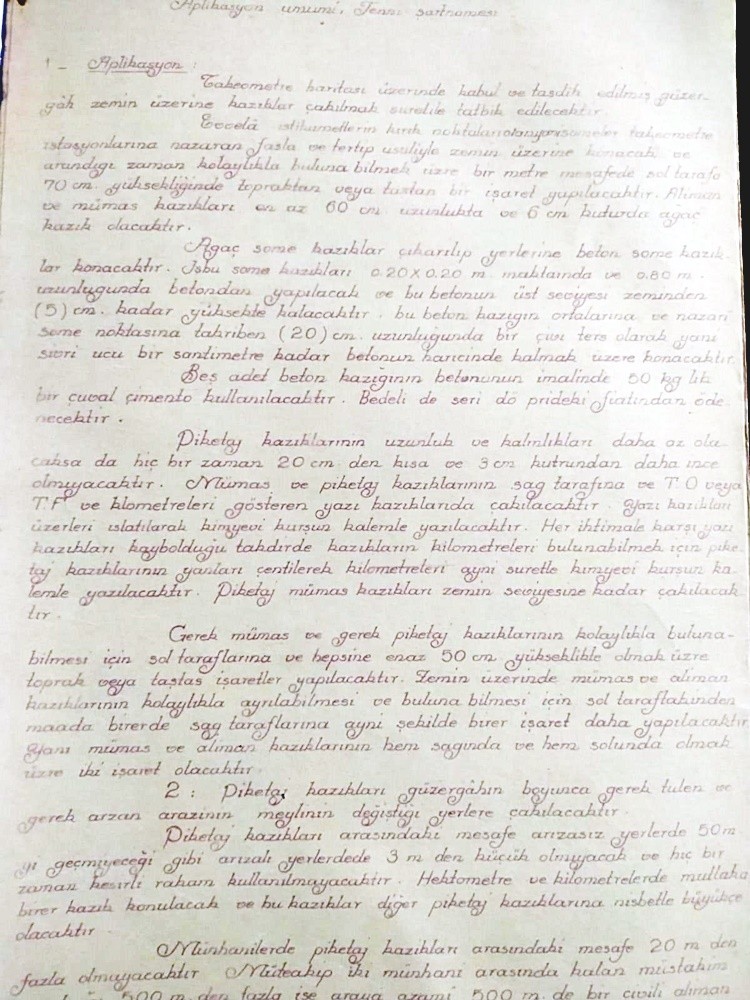 Aplikasyon umumi, Fenni şartnamesi
1 - Aplikasyon :
Takeometre haritası üzerinde kabul ve tasdik edilmiş güzer-
gâh zemin üzerine kazıklar çakılmak suretile tatbik edilecektir.
Evvelâ istikametlerin kırık noktaları olan someler takeometre
istasyonlarına nazaran fasla ve tertip usuliyle zemin üzerine konacak ve
arandığı zaman kolaylıkla buluna bilmek üzre bir metre mesafede sol tarafa
70 cm. yüksekliğinde topraktan veya taştan bir işaret yapılacaktır. Aliman
ve mümas kazıkları en az 60 cm uzunlukta ve 6 cm kuturda ağaç
kazık olacaktır.
Ağaç some kazıklar çıkarılıp yerlerine beton some kazık-
lar konacaktır. İşbu some kazıkları 0.20X0.20 m maktaında ve 0.80 m.
uzunluğunda betondan yapılacak ve bu betonun üst seviyesi zeminden
(5) cm. kadar yüksekte kalacaktır. bu beton kazığın ortalarına ve nazari
some noktasına takriben (20) cm. uzunluğunda bir çivi ters olarak yani
sivri ucu bir santimetre kadar betonun haricinde kalmak üzere konacaktır.
Beş adet beton kazığının betonunun imalinde 50 kg lık
bir çuval çimento kullanılacaktır. Bedeli de seri dö prideki fiatından öde-
necektir.
Piketaj kazıklarının uzunluk ve kalınlıkları daha az ola-
caksa da hiç bir zaman 20 cm den kısa ve 3 cm kutrundan daha ince
olmıyacaktır. Mümas ve piketaj kazıklarının sağ tarafına ve T.O veya
T.F ve klometreleri gösteren yazı kazıklarıda çakılacaktır. Yazı kazıkları
üzerleri ıslatılarak kimyevi kurşun kalemle yazılacaktır. Her ihtimale karşı yazı
kazıkları kaybolduğu takdirde kazıkların kilometreleri bulunabilmek için pike-
taj kazıklarının yanları çentilerek kilometreleri ayni suretle kimyevi kurşun ka-
lemle yazılacaktır. Piketaj mümas kazıkları zemin seviyesine kadar çakılacak-
tır.
Gerek mümas ve gerek piketaj kazıklarının kolaylıkla buluna-
bilmesi için sol taraflarına ve hepsine enaz 50 cm yükseklikte olmak üzre
toprak veya taştas işaretler yapılacaktır. Zemin üzerinde mümas ve aliman
kazıklarının kolaylıkla ayrılabilmesi ve buluna bilmesi için sol taraftakinden
maada birerde sağ taraflarına ayni şekilde birer işaret daha yapılacaktır
Yani mümas ve aliman kazıklarının hem sağında ve hem solunda olmak
üzre iki işaret olacaktır.
2 : Piketaj kazıkları güzergâhın boyunca gerek tulen ve
gerek arzan arazinin meylinin değiştiği yerlere çakılacaktır.
Piketaj kazıkları arasındaki mesafe arızasız yerlerde 50 m.
yi geçmiyeceği gibi arızalı yerlerdede 3 m den küçük olmıyacak ve hiç bir
zaman kesirli rakam kullanılmayacaktır. Hektometre ve kilometrelerde mutlaka
birer kazık konulacak ve bu kazıklar diğer piketaj kazıklarına nisbetle büyükçe
olacaktır.
Münhanilerde piketaj kazıkları arasındaki mesafe 20 m den
fazla olmayacaktır Müteakıp iki münhani arasında kalan müstakim
500 m. den fazla ise araya azami 500 m. de bir çivili aliman